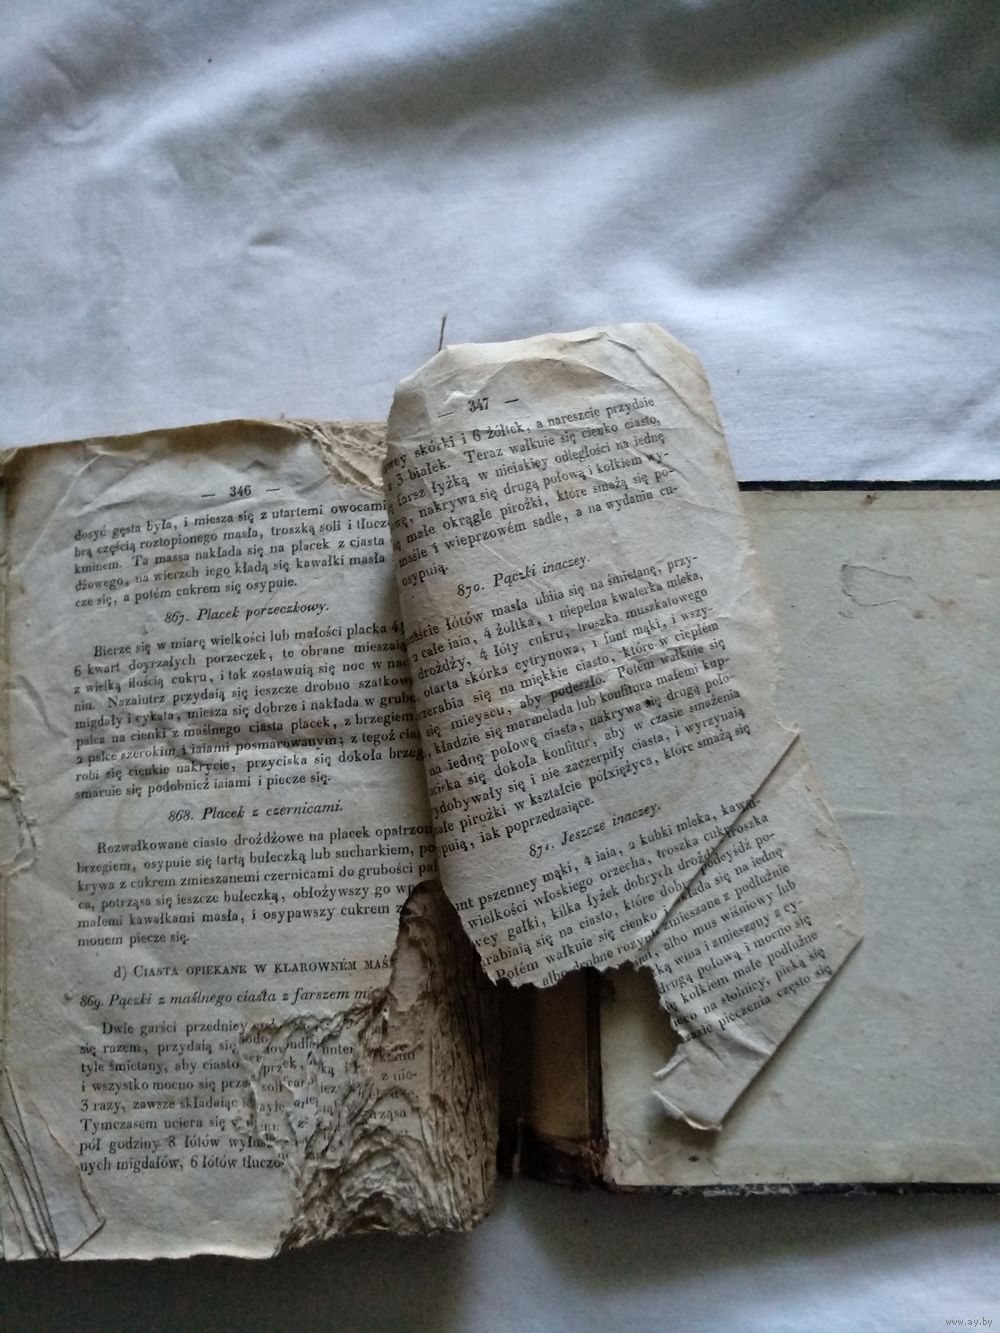 — 346 —
dosyć gęsta była, i miesza się z utartemi owocami
brą częścią roztopionego masła, troszką soli i tłucz
kminem. Ta massa nakłada się na placek z ciasta
dżowego, na wierzch iego kładą się kawałki masła
cze się, a potém cukrem się osypuie.
867. Placek porzeczkowy.
Bierze się w miarę wielkości lub małości placka 4
6 kwart doyrzałych porzeczek, te obrane mieszaią
z wielką ilością cukru, i tak zostawuią się noc w nac
niu. Nazaiutrz przydaią się ieszcze drobno szatkow
migdały i cykata, miesza się dobrze i nakłada w grube
palca na cienki z maślnego ciasta placek, z brzegiem
2 palce szerokim i iaiami posmarowanym; z tegoż cia
robi się cienkie nakrycie, przyciska się dokoła brzeg
smaruie się podobnież iaiami i piecze się.
868. Placek z czernicami.
Rozwałkowane ciasto drożdżowe na placek opatrzon
brzegiem, osypuie się tartą bułeczką lub sucharkiem, po
krywa z cukrem zmieszanemi czernicami do grubości pal
ca, potrząsa się ieszcze bułeczką, obłożywszy go wprz
małemi kawałkami masła, i osypawszy cukrem z
monem piecze się.
d) CIASTA OPIEKANE W KLAROWNÉM MAŚ
869. Pączki z maślnego ciasta z farszem mi
Dwie garści przedniey
się razem, przydaią się
tyle śmietany, aby ciasto
i wszystko mocno się prze
3 razy, zawsze składaiąc
Tymczasem uciera się
pół godziny 8 łótów wyłus
nych migdałów, 6 łótów tłuczo
— 347 —
owey skórki i 6 żółtek, a nareszcie przydaie
z 3 białek. Teraz wałkuie się cienko ciasto,
farsz łyżką w nieiakiey odległości na iednę
wę, nakrywa się drugą połową i kółkiem wy-
małe okrągłe pirożki, które smażą się po-
maśle i wieprzowém sadle, a na wydaniu cu-
osypuią.
870. Pączki inaczey.
naście łótów masła ubiia się na śmietanę, przy-
2 całe iaia, 4 żółtka, 1 niepełna kwaterka mleka,
drożdży, 4 łóty cukru, troszka muszkatowego
otarta skórka cytrynowa, 1 funt mąki, i wszy-
zerabia się na miękkie ciasto, które w ciepłém
się mieyscu, aby podeszło. Potém wałkuie się
, kładzie się marmelada lub konfitura małemi kup-
na iednę połowę ciasta, nakrywa się drugą poło-
aciska się dokoła konfitur, aby w czasie smażenia
ydobywały się i nie zaczerpiły ciasta, i wyrzynaią
ałe pirożki w kształcie półxiężyca, które smażą się
puią, iak poprzedzaiące.
871. Jeszcze inaczey.
unt pszenney mąki, 4 iaia, 2 kubki mleka, kawał-
wielkości włoskiego orzecha, troszka cukru, troszka
wey gałki, kilka łyżek dobrych drożdży
rabiaią się na ciasto, które dobrze podeyśdź po-
Potém wałkuie się cienko i nakłada się na iednę
albo drobne rozynki zmieszane z podłużnie
emi, albo mus wiśniowy lub
ką wina i zmieszany z cy-
drugą połową i mocno się
się kółkiem małe podłużne
nieco na stolnicy, pieką się
czasie pieczenia często się
www.ay.by